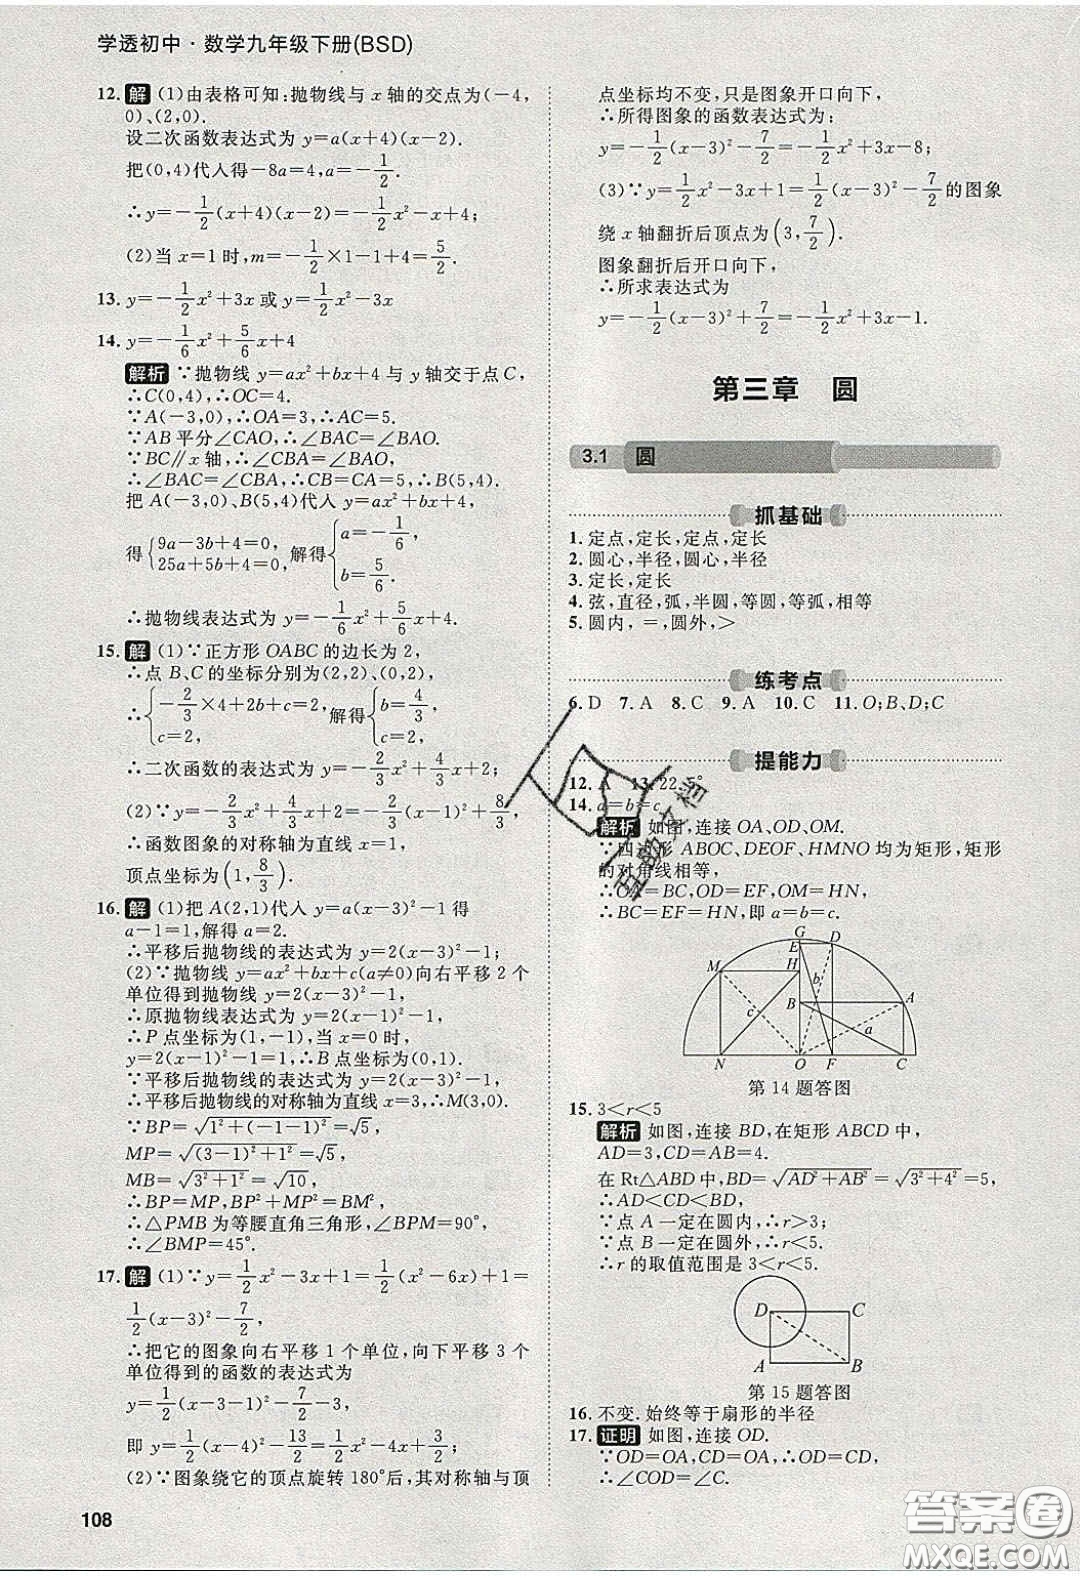 学透初中·数学九年级下册(BSD)
12. 解 (1)由表格可知:抛物线与 x 轴的交点为(-4,
0)、(2,0).
设二次函数表达式为 y=a(x+4)(x-2).
把(0,4)代人得-8a=4,a=-1/2.
∴y=-1/2(x+4)(x-2)=-1/2x²-x+4;
(2)当 x=1 时,m=-1/2×1-1+4=5/2.
13. y=-1/2x²+3x 或 y=1/2x²-3x
14. y=-1/6x²+5/6x+4
解析 ∵抛物线 y=ax²+bx+4 与 y 轴交于点C,
∴C(0,4),∴OC=4.
∵A(-3,0),∴OA=3,∴AC=5.
∵AB 平分∠CAO,∴∠BAC=∠BAO.
∵BC∥x 轴,∴∠CBA=∠BAO,
∴∠BAC=∠CBA,∴CB=CA=5,∴B(5,4).
把 A(-3,0)、B(5,4)代人 y=ax²+bx+4,
得{9a-3b+4=0, 25a+5b+4=4, 解得{a=-1/6, b=5/6.
∴抛物线表达式为 y=-1/6x²+5/6x+4.
15. 解 (1)∵正方形 OABC 的边长为 2,
∴点 B、C 的坐标分别为(2,2)、(0,2),
∴{-2/3×4+2b+c=2, c=2, 解得{b=4/3, c=2.
∴二次函数的表达式为 y=-2/3x²+4/3x+2;
(2)∵y=-2/3x²+4/3x+2=-2/3(x-1)²+8/3,
∴函数图象的对称轴为直线 x=1,
顶点坐标为(1,8/3).
16. 解 (1)把 A(2,1)代人 y=a(x-3)²-1 得
a-1=1,解得 a=2.
∴平移后抛物线的表达式为 y=2(x-3)²-1;
(2)∵抛物线 y=ax²+bx+c(a≠0)向右平移 2 个
单位得到抛物线 y=2(x-3)²-1,
∴原抛物线表达式为 y=2(x-1)²-1,
∴P 点坐标为(1,-1),当 x=0 时,
y=2(x-1)²-1=1,∴B 点坐标为(0,1).
∵平移后抛物线的表达式为 y=2(x-3)²-1,
∴平移后抛物线的对称轴为直线 x=3,∴M(3,0).
∵BP=√(1²+(-1-1)²)=√5,
MP=√((3-1)²+1²)=√5,
MB=√(3²+1²)=√10,
∴BP=MP,BP²+MP²=BM²,
∴△PMB 为等腰直角三角形,∠BPM=90°,
∴∠BMP=45°.
17. 解 (1)∵y=1/2x²-3x+1=1/2(x²-6x)+1=
1/2(x-3)²-7/2,
∴把它的图象向右平移 1 个单位,向下平移 3 个
单位得到的函数的表达式为
y=1/2(x-3-1)²-7/2-3,
即 y=1/2(x-4)²-13/2=1/2x²-4x+3/2;
(2)∵图象绕它的顶点旋转 180°后,其对称轴与顶
108
点坐标均不变,只是图象开口向下,
∴所得图象的函数表达式为:
y=-1/2(x-3)²-7/2=-1/2x²+3x-8;
(3)∵y=1/2x²-3x+1=1/2(x-3)²-7/2的图象
绕 x 轴翻折后顶点为(3,7/2).
图象翻折后开口向下,
∴所求表达式为
y=-1/2(x-3)²+7/2=-1/2x²+3x-1.
第三章 圆
3.1 圆
抓基础
1. 定点,定长,定点,定长
2. 圆心,半径,圆心,半径
3. 定长,定长
4. 弦,直径,弧,半圆,等圆,等弧,相等
5. 圆内,=,圆外,>
练考点
6. D 7. A 8. C 9. A 10. C 11. O;B、D;C
提能力
12. A 13. 22.5°
14. a=b=c
解析 如图,连接 OA、OD、OM.
∵四边形 ABOC、DEOF、HMNO 均为矩形,矩形
的对角线相等,
∴OA=BC,OD=EF,OM=HN,
∴BC=EF=HN,即 a=b=c.
G
E D
M H
b
B A
c a
N O F C
第 14 题答图
15. 3<r<5
解析 如图,连接 BD,在矩形 ABCD 中,
AD=3,CD=AB=4.
在 Rt△ABD 中,BD=√(AD²+AB²)=√(3²+4²)=5,
∴AD<CD<BD,
∵点 A 一定在圆内,∴r>3;
∵点 B 一定在圆外,∴r<5.
∴r 的取值范围是 3<r<5.
D C
A B
第 15 题答图
16. 不变. 始终等于扇形的半径
17. 证明 如图,连接 OD.
∵OD=OA,CD=OA,∴OD=CD,
∴∠COD=∠C.
答案圈
MXQE.COM